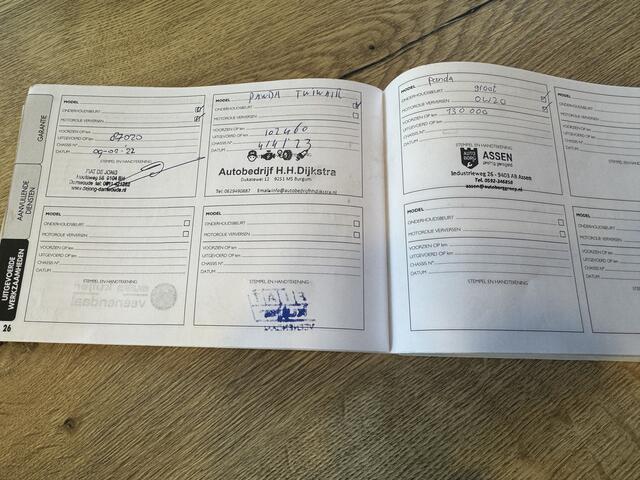 GARANTIE
AANVULLENDE
DIENSTEN
UITGEVOERDE
WERKZAAMHEDEN
26
MODEL
ONDERHOUDSBEURT
MOTOROLIE VERVERSEN
VOORZIEN OP km
UITGEVOERD OP km 87020
CHASSIS N°
DATUM 09-02-22
STEMPEL EN HANDTEKENING
FIAT DE JONG
MODEL PANDA TWINAIR
ONDERHOUDSBEURT
MOTOROLIE VERVERSEN
VOORZIEN OP km
UITGEVOERD OP km 102460
CHASSIS N°
DATUM 4/4/23
Autobedrijf H.H.Dijkstra
Dukatewei 12 9251 MS Burgum
Tel. 0629490887 Email: info@autobedrijfhhdijkstra.nl
MODEL
ONDERHOUDSBEURT
MOTOROLIE VERVERSEN
VOORZIEN OP km
UITGEVOERD OP km
CHASSIS N°
DATUM
STEMPEL EN HANDTEKENING
MODEL
ONDERHOUDSBEURT
MOTOROLIE VERVERSEN
VOORZIEN OP km
UITGEVOERD OP km
CHASSIS N°
DATUM
STEMPEL EN HANDTEKENING
MODEL Panda
ONDERHOUDSBEURT groot
MOTOROLIE VERVERSEN 0W20
VOORZIEN OP km 130 000
UITGEVOERD OP km
CHASSIS N°
DATUM
STEMPEL EN HANDTEKENING
AUTO
BORG
ASSEN
Industrieweg 26 - 9403 AB Assen
Tel. 0592-346858
assen@autoborggroep.nl
MODEL
ONDERHOUDSBEURT
MOTOROLIE VERVERSEN
VOORZIEN OP km
UITGEVOERD OP km
CHASSIS N°
DATUM
STEMPEL EN HANDTEKENING
MODEL
ONDERHOUDSBEURT
MOTOROLIE VERV
VOORZIEN OP km
UITGEVOERD OP
CHASSIS N°
DATUM
MODEL
ONDERHOUDSB
MOTOROLIE VER
VOORZIEN OP
UITGEVOERD
CHASSIS N°
DATUM